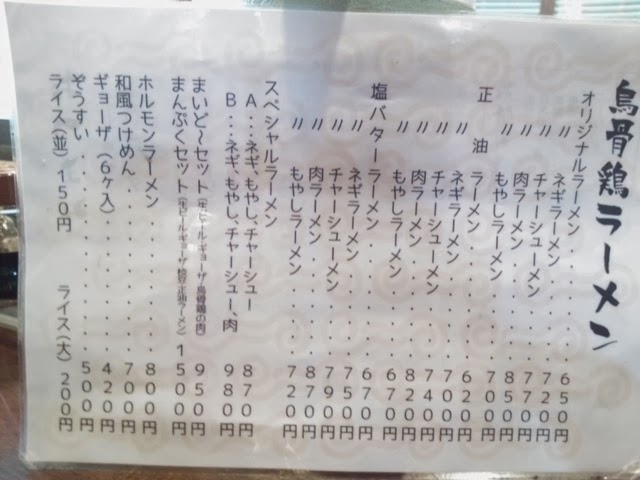 烏骨鶏ラーメン
オリジナルラーメン......650円
〃 ネギラーメン......720円
〃 チャーシューメン......770円
〃 肉ラーメン......850円
〃 もやしラーメン......700円
正油ラーメン......620円
〃 ネギラーメン......700円
〃 チャーシューメン......740円
〃 肉ラーメン......820円
〃 もやしラーメン......670円
塩バターラーメン......670円
〃 ネギラーメン......750円
〃 チャーシューメン......790円
〃 肉ラーメン......870円
〃 もやしラーメン......720円
スペシャルラーメン
A...ネギ、もやし、チャーシュー 870円
B...ネギ、もやし、チャーシュー、肉 980円
まいど〜セット(生ビール・ギョーザ・烏骨鶏の肉) 950円
まんぷくセット(生ビール・ギョーザ・正油ラーメン) 1500円
ホルモンラーメン......800円
和風つけめん......700円
ギョーザ(6ヶ入)......420円
ぞうすい......500円
ライス(並)150円 ライス(大)200円